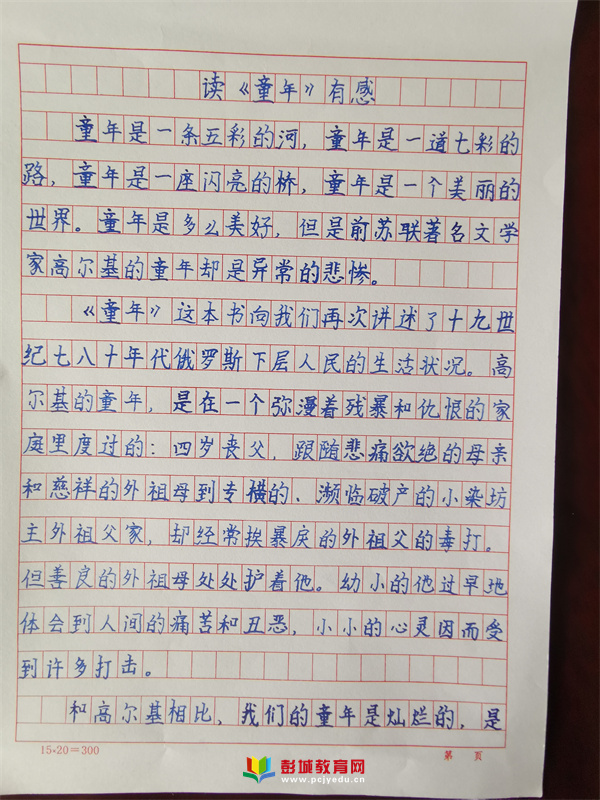 读《童年》有感
童年是一条五彩的河，童年是一道七彩的
路，童年是一座闪亮的桥，童年是一个美丽的
世界。童年是多么美好，但是前苏联著名文学
家高尔基的童年却是异常的悲惨。
《童年》这本书向我们再次讲述了十九世
纪七八十年代俄罗斯下层人民的生活状况。高
尔基的童年，是在一个弥漫着残暴和仇恨的家
庭里度过的：四岁丧父，跟随悲痛欲绝的母亲
和慈祥的外祖母到专横的、濒临破产的小染坊
主外祖父家，却经常挨暴戾的外祖父的毒打。
但善良的外祖母处处护着他。幼小的他过早地
体会到人间的痛苦和丑恶，小小的心灵因而受
到许多打击。
和高尔基相比，我们的童年是灿烂的，是
15×20=300
第 页
彭城教育网
www.pcjyedu.cn